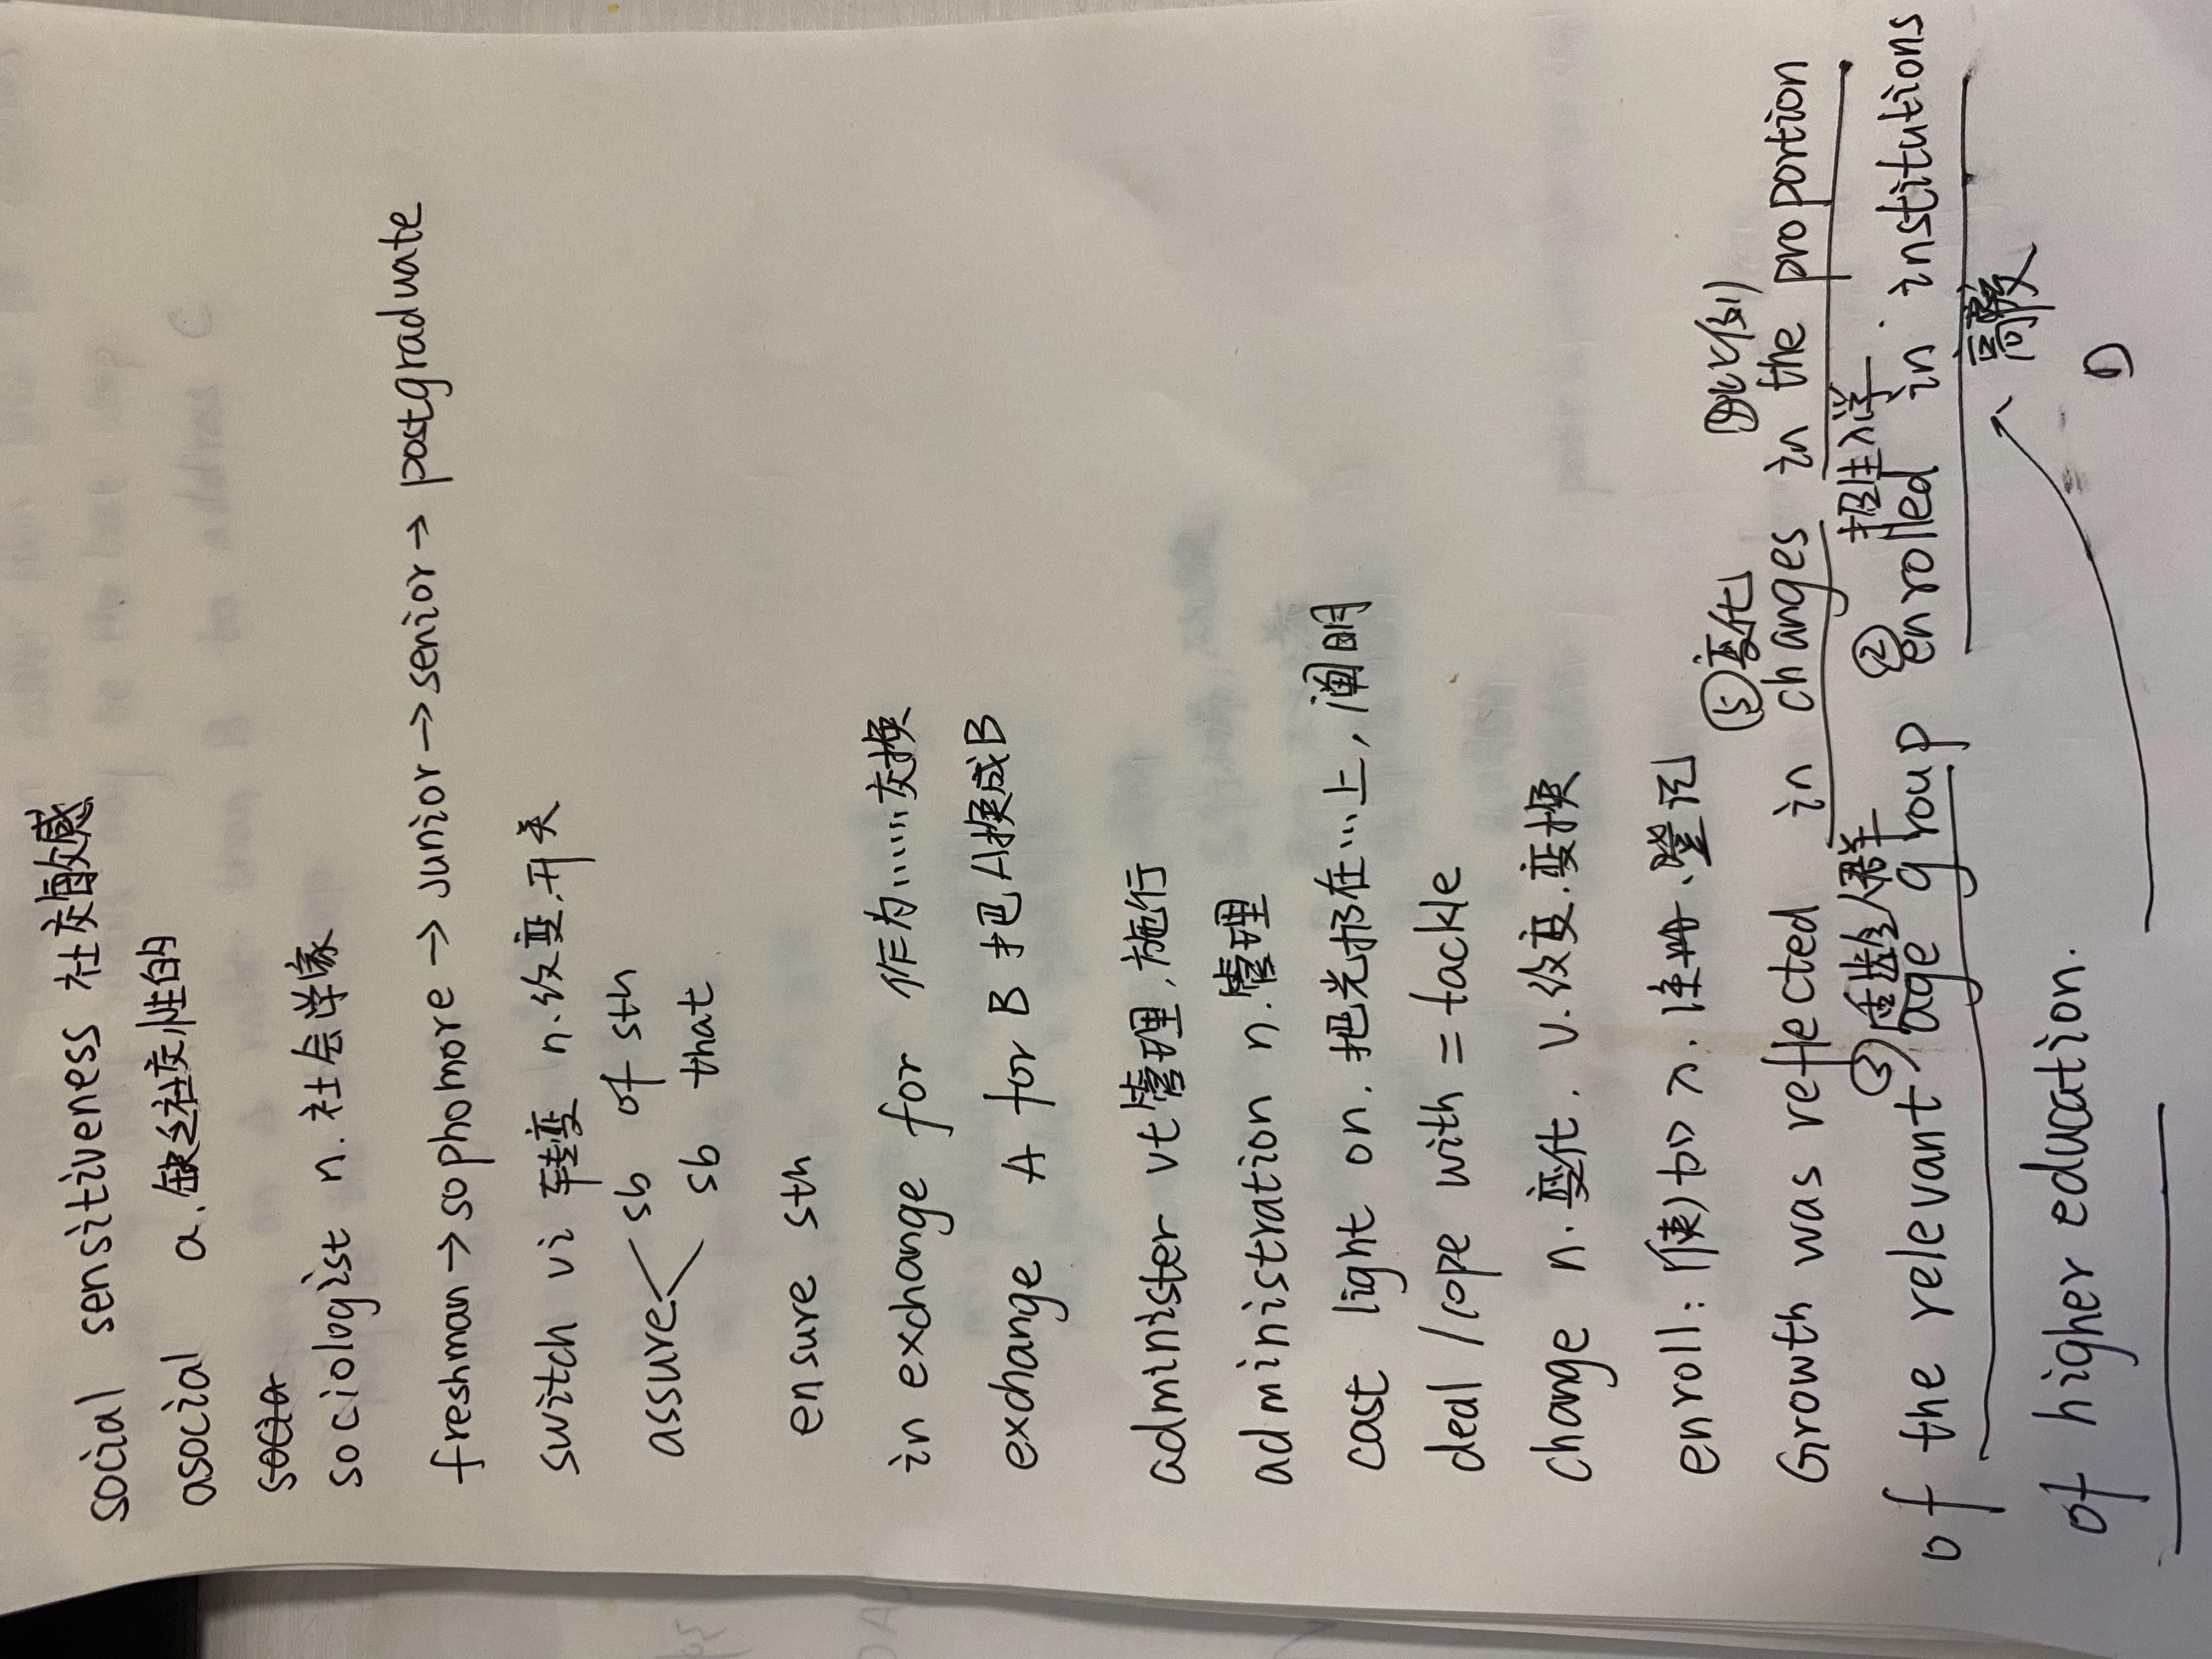 social sensitiveness 社交敏感
asocial a. 缺乏社交性的
socia
sociologist n. 社会学家
freshman → sophomore → junior → senior → postgraduate
switch vi 转变 n. 改变. 开关
assure sb of sth
sb that
ensure sth
in exchange for 作为……交换
exchange A for B 把A换成B
administer vt 管理, 施行
administration n. 管理
cast light on. 把光扔在…上, 阐明
deal /cope with = tackle
change n. 变化. v. 改变. 变换
enroll: (使)加入. 注册、登记
⑤变化 ④比例
Growth was reflected in changes in the proportion
③适龄人群 ② 招生入学
of the relevant age group enrolled in institutions
高校
of higher education.